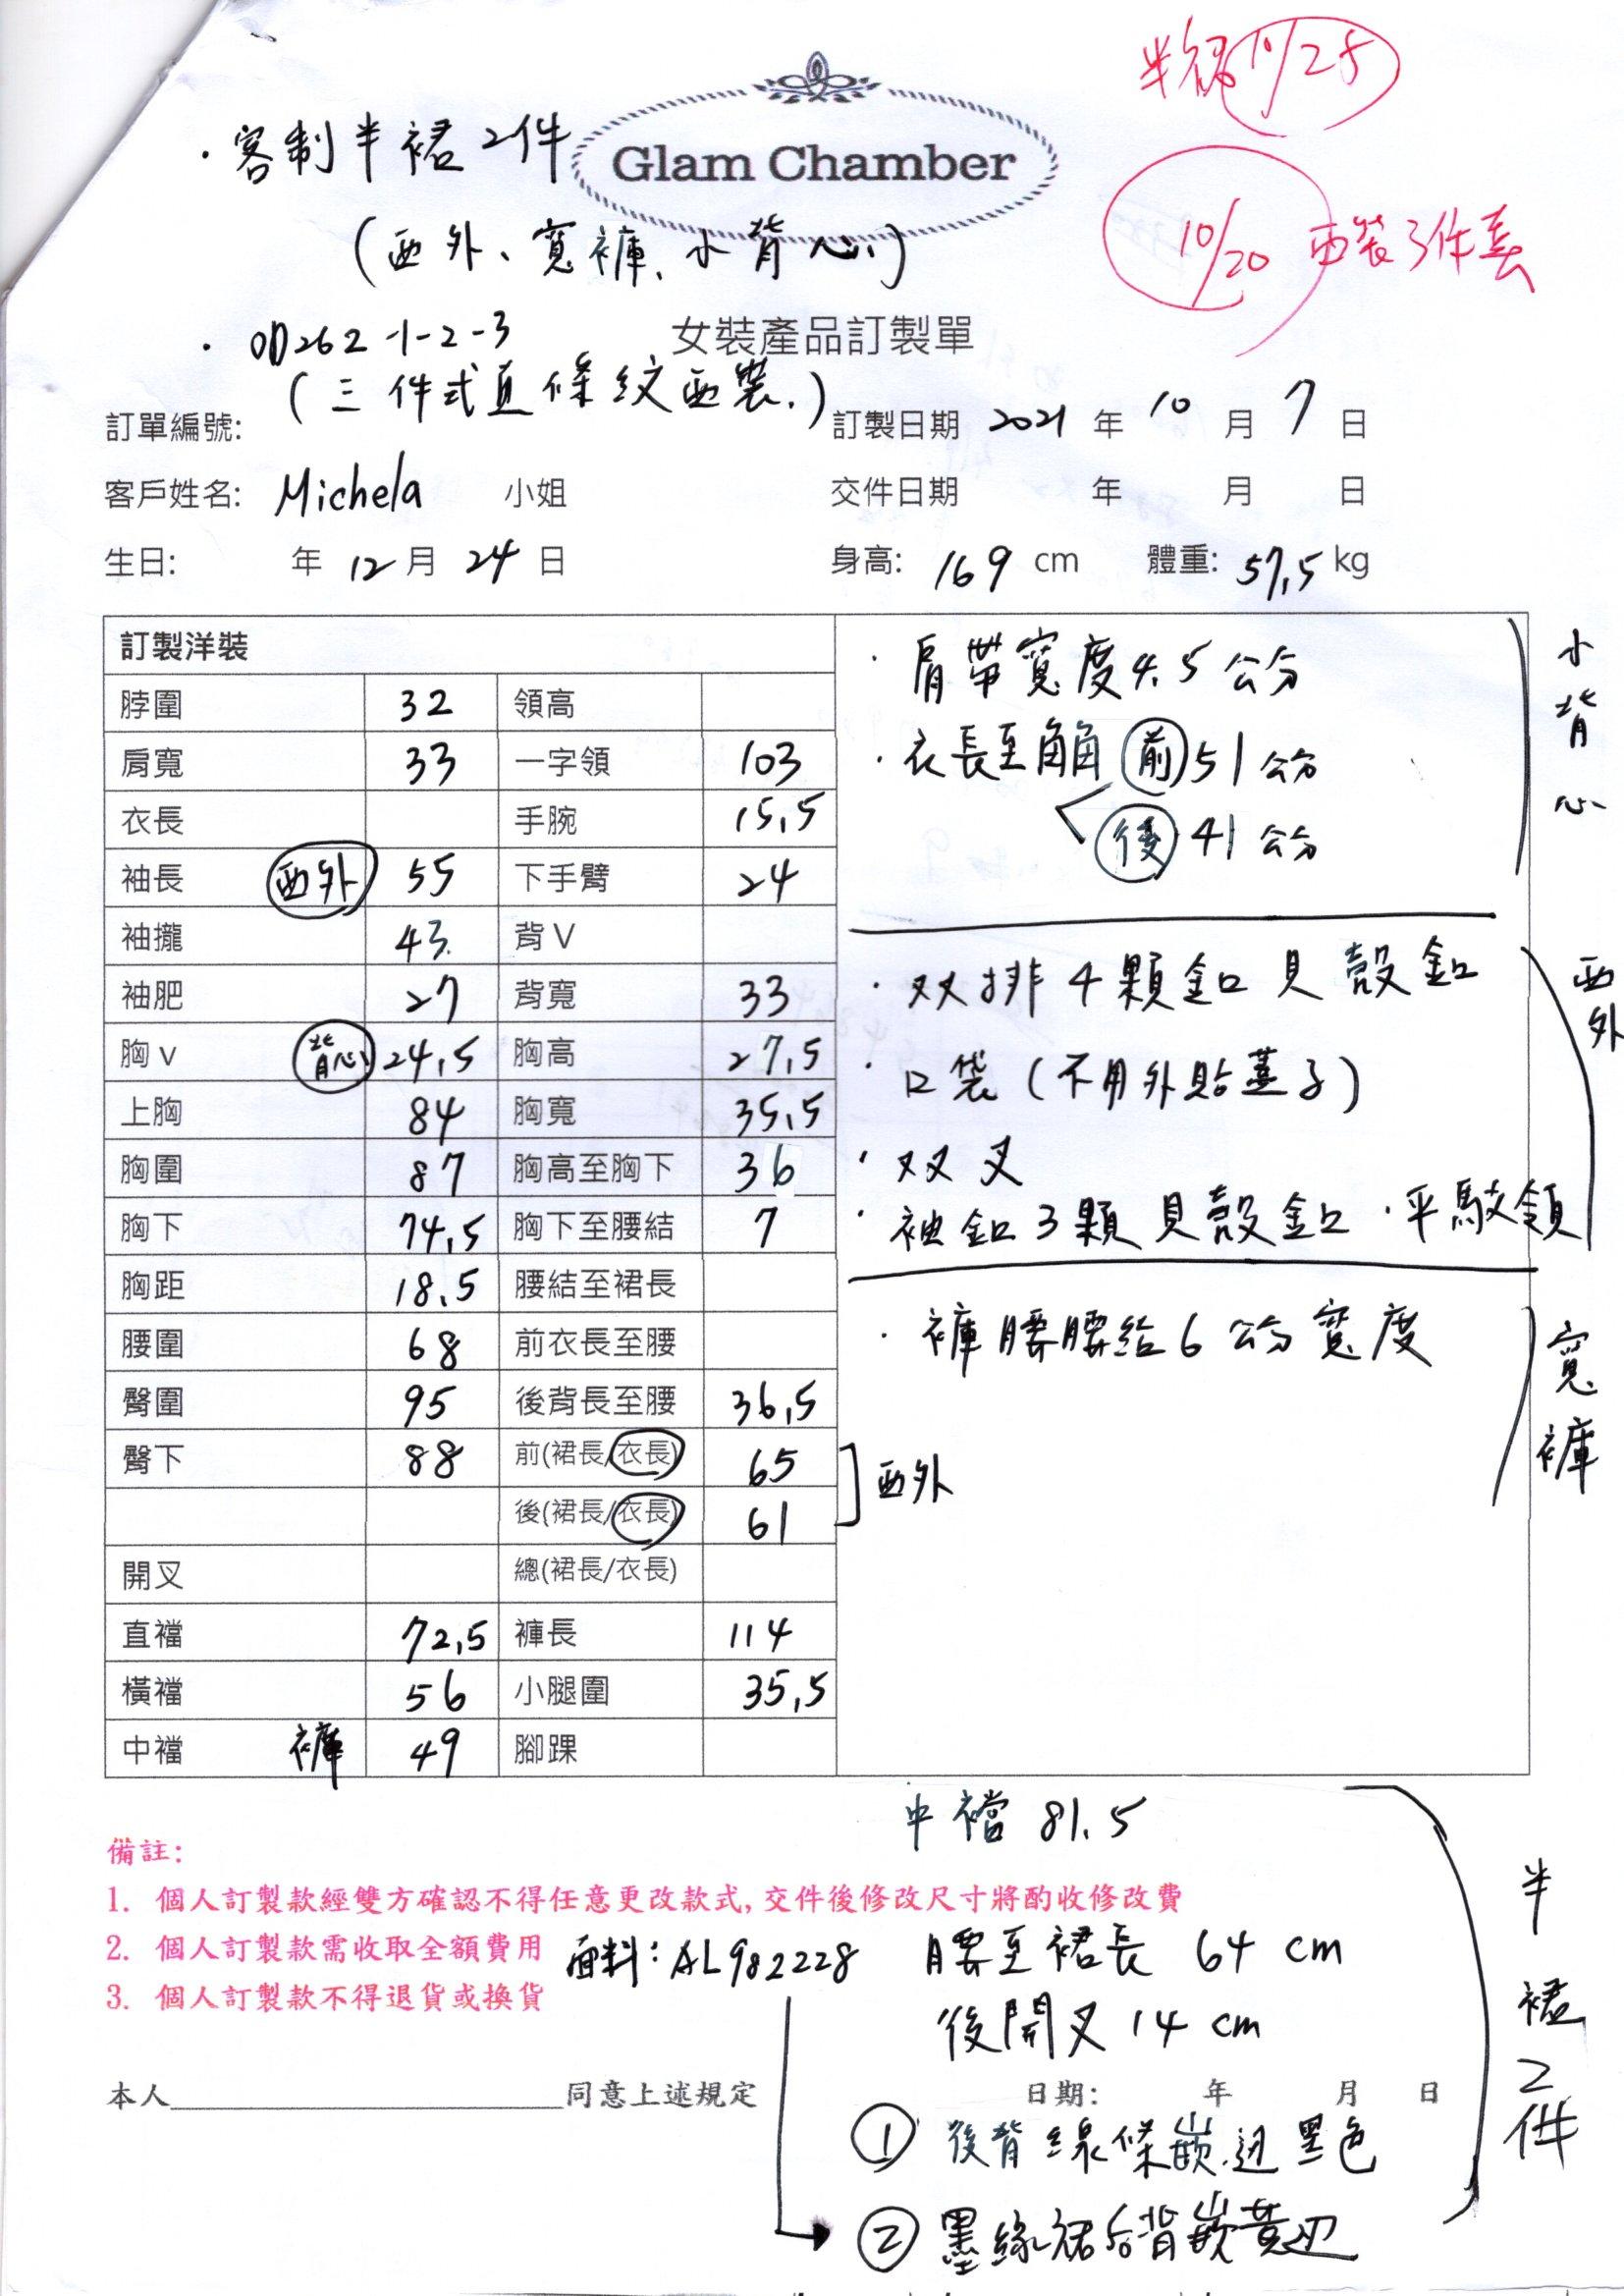 半裙 10/25
·客制半裙2件
Glam Chamber
(西外、寬褲、小背心)
10/20 西裝3件套
·OD262-1-2-3
女裝產品訂製單
(三件式直條紋西裝.)
訂單編號:
訂製日期 2021 年 10 月 7 日
客戶姓名: Michela 小姐
交件日期 年 月 日
生日: 年 12 月 24 日
身高: 169 cm 體重: 57.5 kg
訂製洋裝
脖圍 32 領高
肩寬 33 一字領 103
衣長 手腕 15.5
袖長 西外 55 下手臂 24
袖攏 43. 背V
袖肥 27 背寬 33
胸v 背心 24.5 胸高 27.5
上胸 84 胸寬 35.5
胸圍 87 胸高至胸下 36
胸下 74.5 胸下至腰結 7
胸距 18.5 腰結至裙長
腰圍 68 前衣長至腰
臀圍 95 後背長至腰 36.5
臀下 88 前(裙長/衣長) 65
後(裙長/衣長) 61
西外
開叉 總(裙長/衣長)
直襠 72.5 褲長 114
橫襠 56 小腿圍 35.5
中襠 褲 49 腳踝
小背心
·肩帶寬度4.5公分
·衣長至角角 前 51公分
後 41公分
西外
·双排4顆釦貝殼釦
·口袋(不用外貼蓋子)
·双叉
·袖釦3顆貝殼釦 ·平駁領
寬褲
·褲腰腰給6公分寬度
半裙2件
中襠 81.5
備註:
1. 個人訂製款經雙方確認不得任意更改款式,交件後修改尺寸將酌收修改費
2. 個人訂製款需收取全額費用
3. 個人訂製款不得退貨或換貨
面料: AL982228
腰至裙長 64 cm
後開叉 14 cm
本人 同意上述規定
日期: 年 月 日
① 後背線條嵌边黑色
② 墨綠裙后背嵌黃边